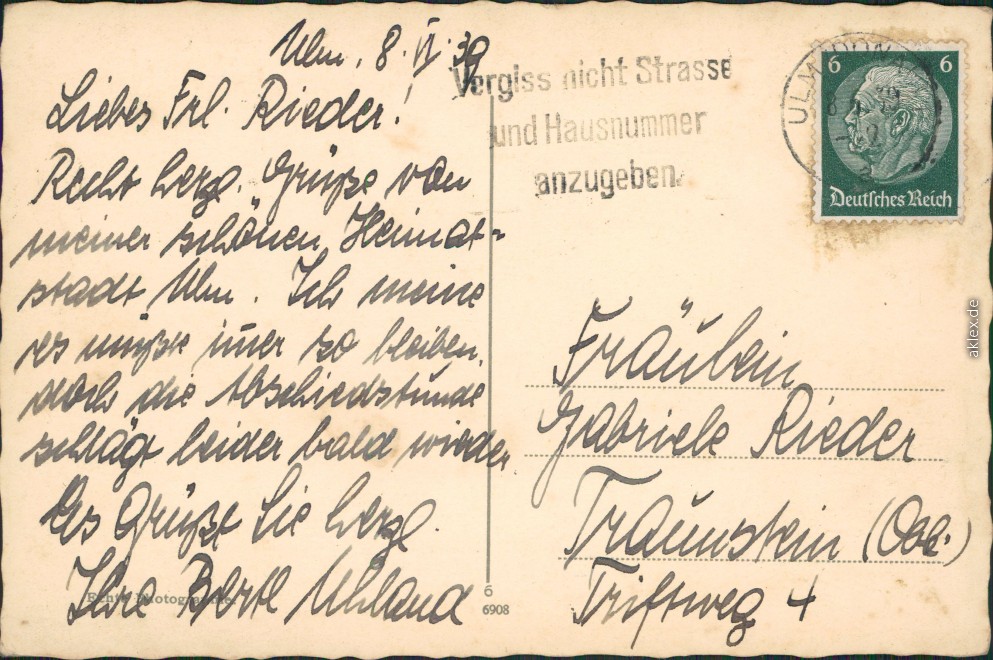 Ulm, 8. VI. 39
Liebes Frl. Rieder!
Recht herzl. Grüße von
meiner schönen Heimat-
stadt Ulm. Ich meine
es müßte im̄er so bleiben,
doch die Abschiedstunde
schlägt leider bald wieder.
Es Grüßt Sie herzl.
Ihre Bertl Uhland
Echte Photographie
6
6908
Vergiss nicht Strasse
und Hausnummer
anzugeben.
ULM (DONAU)
6 6
Deutsches Reich
Fräulein
Gabriele Rieder
Traunstein (Obb.)
Triftweg 4
aklex.de